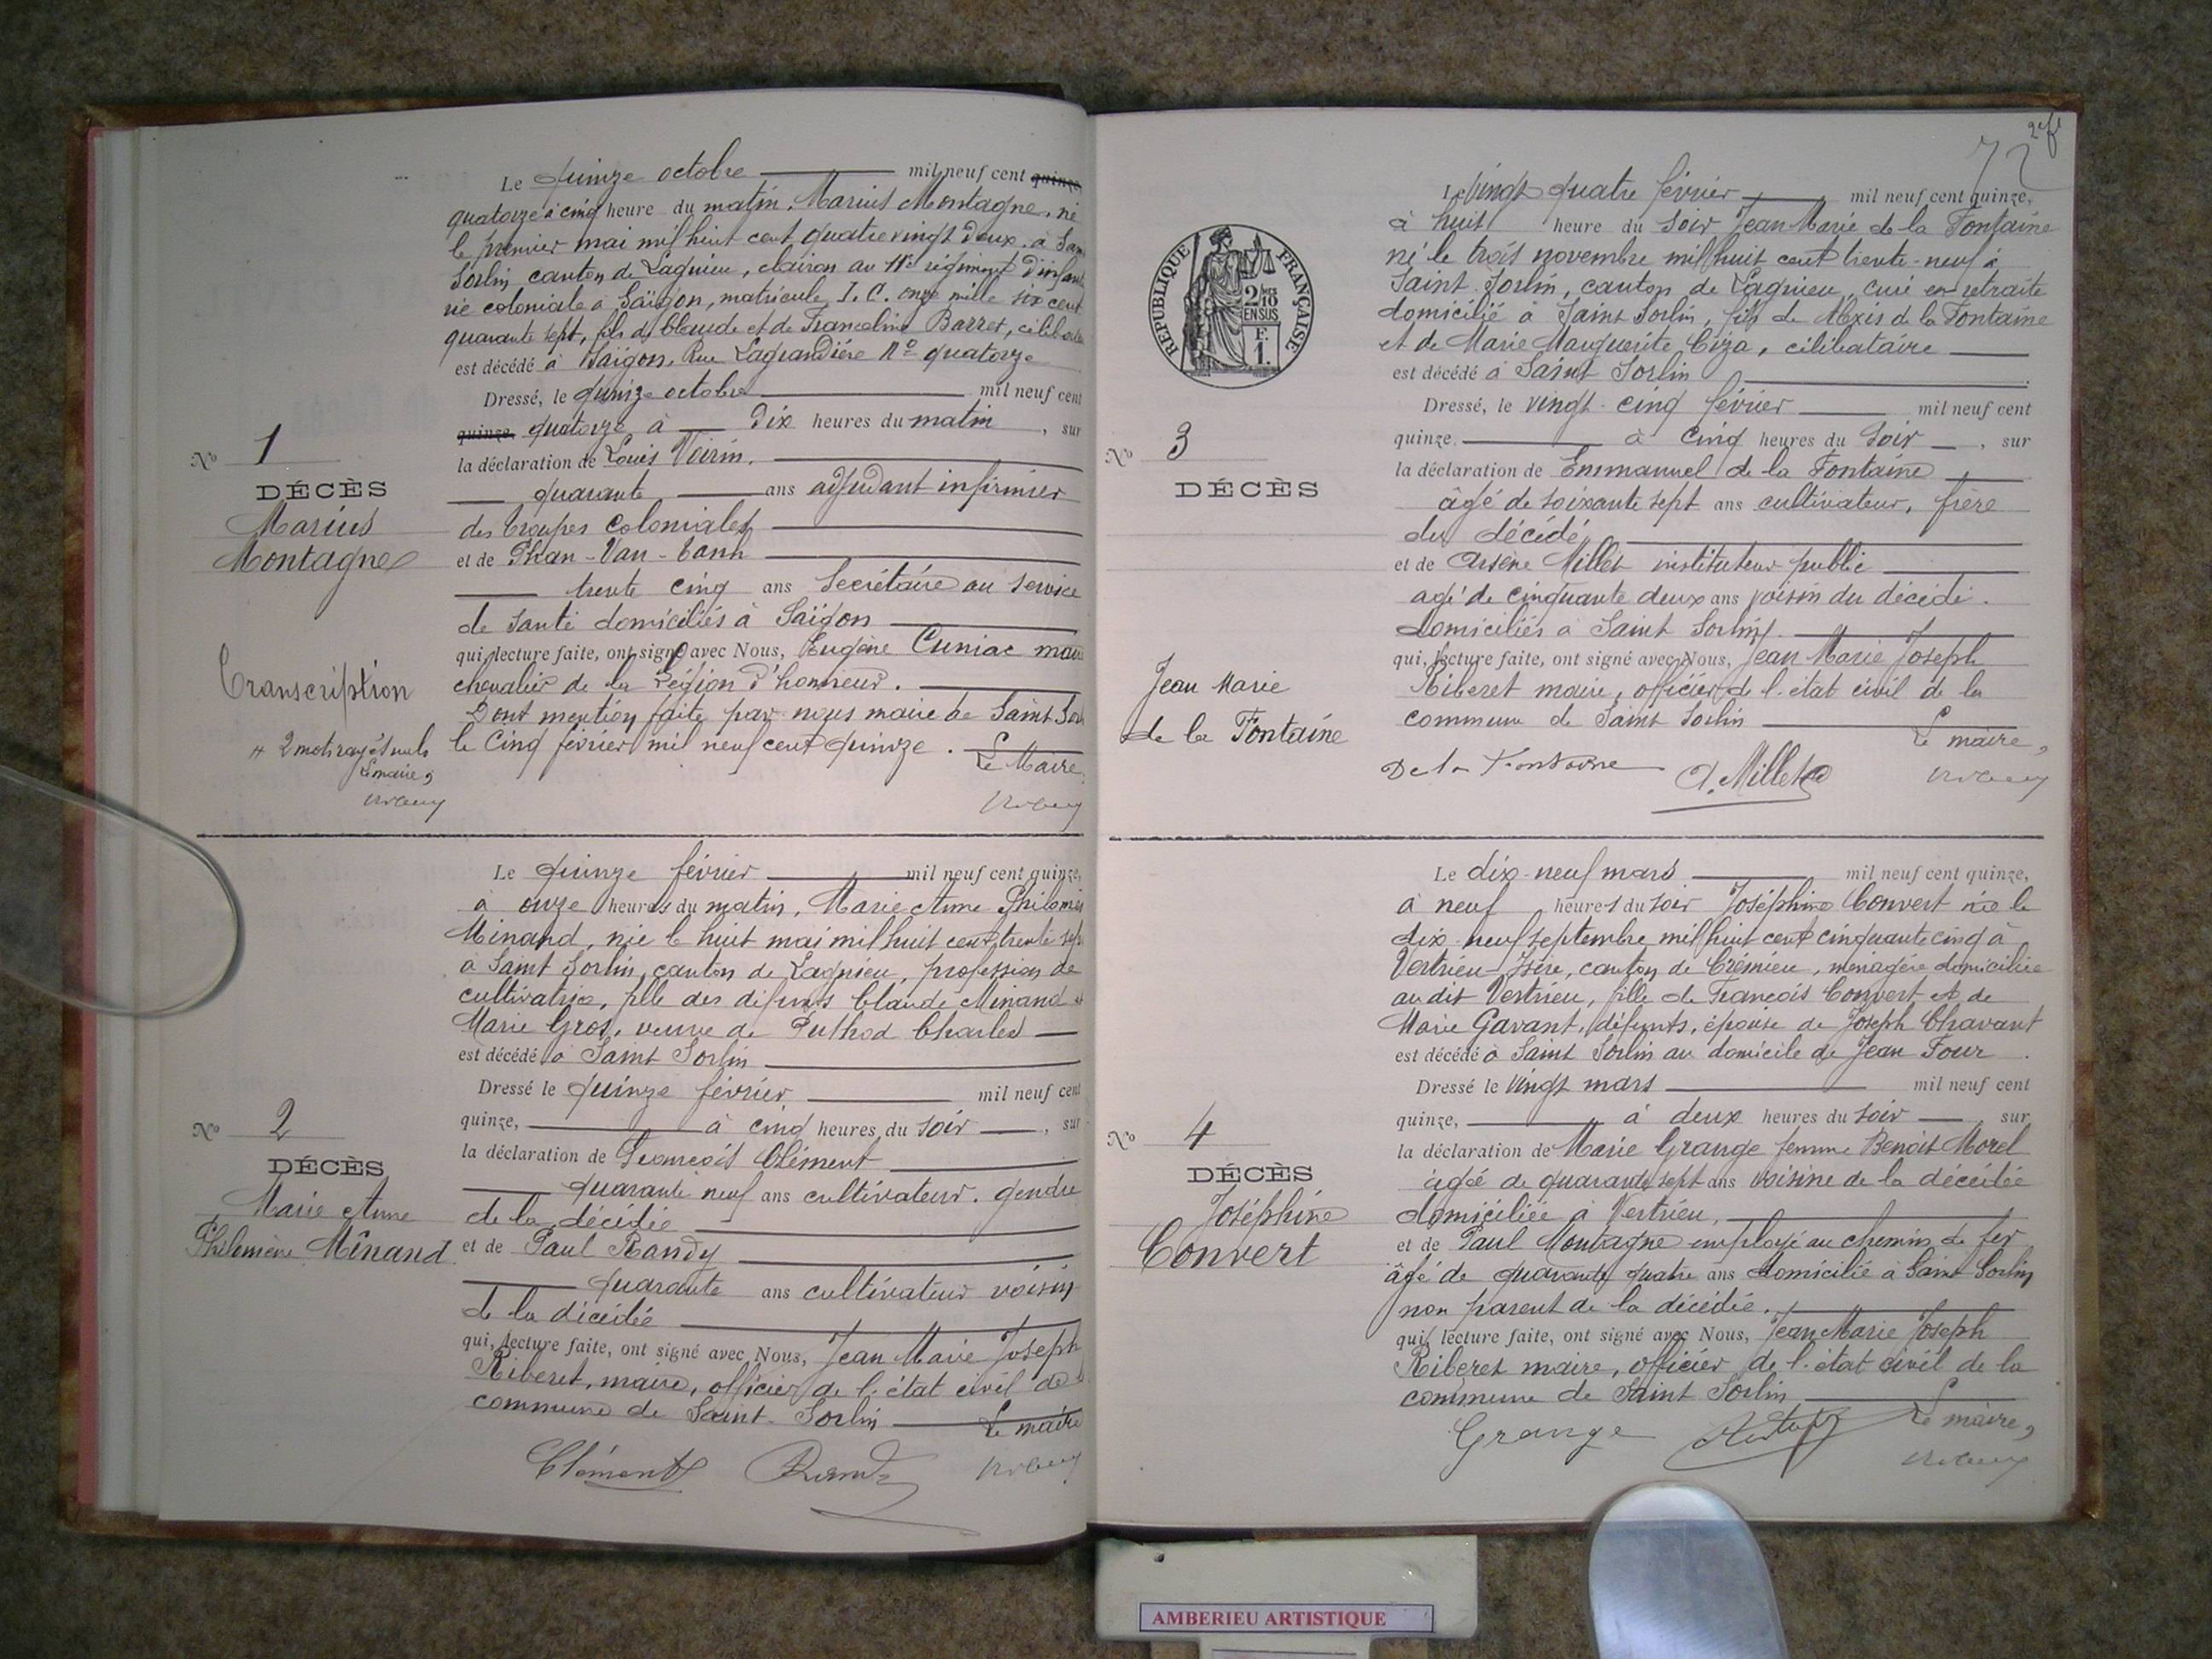 Le quinze octobre mil neuf cent quinze,
quatorze à cinq heure du matin, Marius Montagne, né
le premier mai mil huit cent quatre vingt deux, à Saint
Sorlin canton de Lagnieu, clairon au 11e régiment d'infante
rie coloniale à Saïgon, matricule I. C. onze mille six cent
quarante sept, fils de Claude et de Franceline Barret, célibataire
est décédé à Saïgon, Rue Lagrandière No quatorze
Dressé, le quinze octobre mil neuf cent
quinze, quatorze à dix heures du matin, sur
la déclaration de Louis Voirin,
quarante ans adjudant infirmier
des troupes coloniales
et de Phan-Van-Canh
trente cinq ans Secrétaire au service
de santé domiciliés à Saïgon
qui, lecture faite, ont signé avec Nous, Eugène Cuniac maire
chevalier de la Légion d'honneur.
Dont mention faite par nous maire de Saint Sorlin
le Cinq février mil neuf cent quinze. Le Maire,
No 1
DÉCÈS
Marius
Montagne
Transcription
2 mots rayés nuls
Le maire,
Le quinze février mil neuf cent quinze,
à onze heures du matin, Marie Anne Philomène
Minand, née le huit mai mil huit cent trente sept
à Saint Sorlin, canton de Lagnieu, profession de
cultivatrice, fille des défunts Claude Minand et
Marie Gros, veuve de Puthod Charles
est décédé à Saint Sorlin
Dressé le quinze février mil neuf cent
quinze, à cinq heures du soir, sur
la déclaration de François Clément
quarante neuf ans cultivateur, gendre
de la décédée
et de Paul Randy
quarante ans cultivateur voisin
de la décédée
qui, lecture faite, ont signé avec Nous, Jean Marie Joseph
Riberet, maire, officier de l'état civil de la
commune de Saint-Sorlin Le maire
Clément Randy
No 2
DÉCÈS
Marie Anne
Philomène Mînand
72
2e f
RÉPUBLIQUE FRANÇAISE
2/10
EN SUS
F.
1.
Le vingt quatre février mil neuf cent quinze,
à huit heure du soir Jean Marie de la Fontaine
né le trois novembre mil huit cent trente-neuf à
Saint Sorlin, canton de Lagnieu, curé en retraite
domicilié à Saint Sorlin, fils de Alexis de la Fontaine
et de Marie Marguerite Ciza, célibataire
est décédé à Saint Sorlin
Dressé, le vingt-cinq février mil neuf cent
quinze, à cinq heures du soir, sur
la déclaration de Emmanuel de la Fontaine,
âgé de soixante sept ans cultivateur, frère
du décédé,
et de Arsène Millet instituteur public
agé de cinquante deux ans voisin du décédé.
domiciliés à Saint Sorlin.
qui, lecture faite, ont signé avec Nous, Jean Marie Joseph
Riberet maire, officier de l'état civil de la
commune de Saint Sorlin
Le maire,
De la Fontaine A. Millet
No 3
DÉCÈS
Jean Marie
de la Fontaine
Le dix-neuf mars mil neuf cent quinze,
à neuf heures du soir Joséphine Convert née le
dix-neuf septembre mil huit cent cinquante cinq à
Vertrieu, Isère, canton de Crémieu, ménagère domiciliée
au dit Vertrieu, fille de François Convert et de
Marie Gavant, défunts, épouse de Joseph Chavant
est décédé à Saint Sorlin au domicile de Jean Four.
Dressé le vingt mars mil neuf cent
quinze, à deux heures du soir, sur
la déclaration de Marie Grange femme Benoît Morel
âgée de quarante sept ans voisine de la décédée
domiciliée à Vertrieu,
et de Paul Montagne employé au chemin de fer
âgé de quarante quatre ans domicilié à Saint Sorlin
non parent de la décédée.
qui, lecture faite, ont signé avec Nous, Jean Marie Joseph
Riberet maire, officier de l'état civil de la
commune de Saint Sorlin
Le maire,
Grange
No 4
DÉCÈS
Joséphine
Convert
AMBERIEU ARTISTIQUE